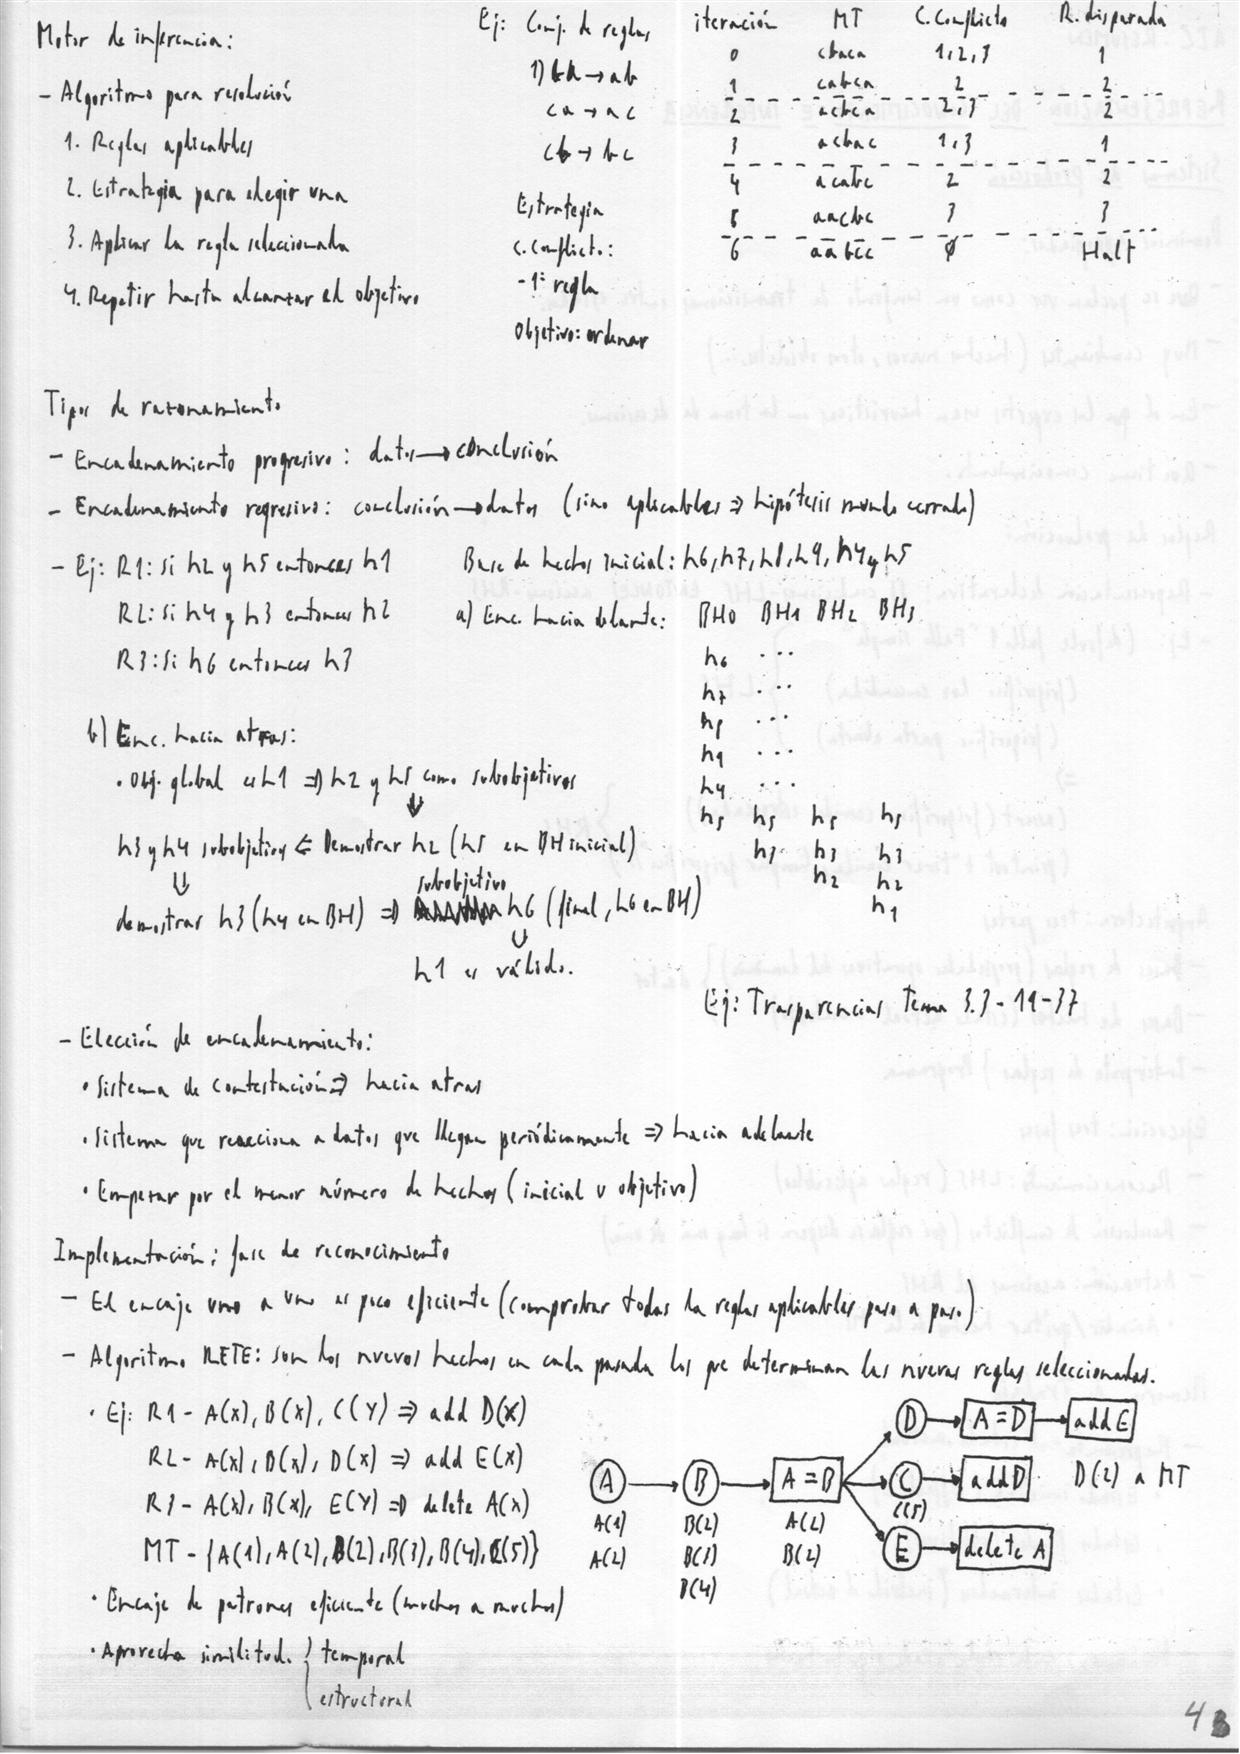 Motor de inferencia:
- Algoritmo para resolución
1. Reglas aplicables
2. Estrategia para elegir una
3. Aplicar la regla seleccionada
4. Repetir hasta alcanzar el objetivo
Ej: Conj. de reglas
1) ba → ab
ca → ac
cb → bc
Estrategia
C. Conflicto:
- 1ª regla
Objetivo: ordenar
iteración MT C. Conflicto R. disparada
0 cbaca 1,2,3 1
1 cabca 2 2
2 acbca 2,3 2
3 acbac 1,3 1
4 acabc 2 2
5 aacbc 3 3
6 aabcc ∅ Halt
Tipos de razonamiento
- Encadenamiento progresivo: datos → conclusión
- Encadenamiento regresivo: conclusión → datos (sino aplicables ⇒ hipótesis mundo cerrado)
- Ej: R1: Si h2 y h5 entonces h1
R2: Si h4 y h3 entonces h2
R3: Si h6 entonces h3
Base de hechos inicial: h6, h7, h8, h9, h4 y h5
a) Enc. hacia delante: BH0 BH1 BH2 BH3
h6 ...
h7 ...
h8 ...
h9 ...
h4 ...
h5 h5 h5 h5
h3 h3 h3
h2 h2
h1
b) Enc. hacia atras:
• Obj. global es h1 ⇒ h2 y h5 como subobjetivos
⇓
h3 y h4 subobjetivos ⇐ Demostrar h2 (h5 en BH inicial)
⇓ subobjetivo
demostrar h3 (h4 en BH) ⇒ h6 (final, h6 en BH)
⇓
h1 es válido.
Ej: Trasparencias Tema 3.3 - 19 - 37
- Elección de encadenamiento:
• Sistema de contestación ⇒ hacia atras
• Sistema que reacciona a datos que llegan periódicamente ⇒ hacia adelante
• Empezar por el menor número de hechos (inicial u objetivo)
Implementación: fase de reconocimiento
- El encaje uno a uno es poco eficiente (comprobar todas la reglas aplicables paso a paso)
- Algoritmo RETE: son los nuevos hechos en cada pasada los que determinan las nuevas reglas seleccionadas.
• Ej: R1 - A(x), B(x), C(Y) ⇒ add D(x)
R2 - A(x), B(x), D(x) ⇒ add E(x)
R3 - A(x), B(x), E(Y) ⇒ delete A(x)
MT - {A(1), A(2), B(2), B(3), B(4), C(5)}
D A=D add E
A B A=B C add D D(2) a MT
A(1) B(2) A(2) C(5)
A(2) B(3) B(2) E delete A
B(4)
• Encaje de patrones eficiente (muchos a muchos)
• Aprovecha similitud. { temporal
estructural
4